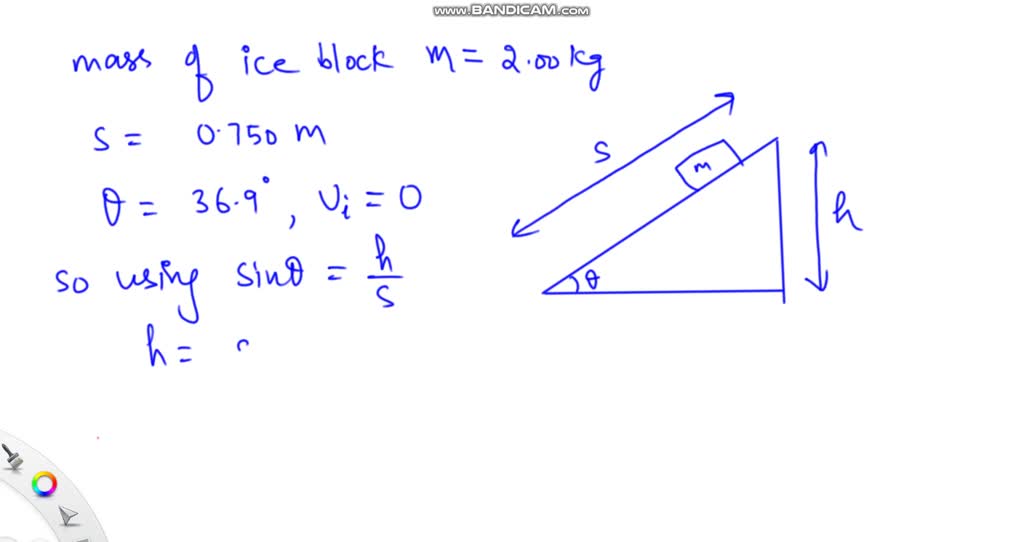 www.BANDICAM.com
mass of ice block m = 2.00 kg
s = 0.750 m
θ = 36.9°, Vi = 0
so using sinθ = h/s
h =
s
m
h
θ